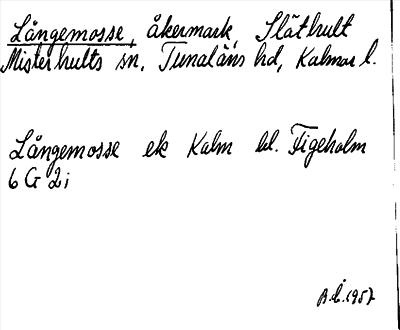 Långemosse, åkermark, Släthult
Misterhults sn, Tunaläns hd, Kalmar l.
Långemosse ek Kalm bl. Figeholm
6 G 2 i
1957